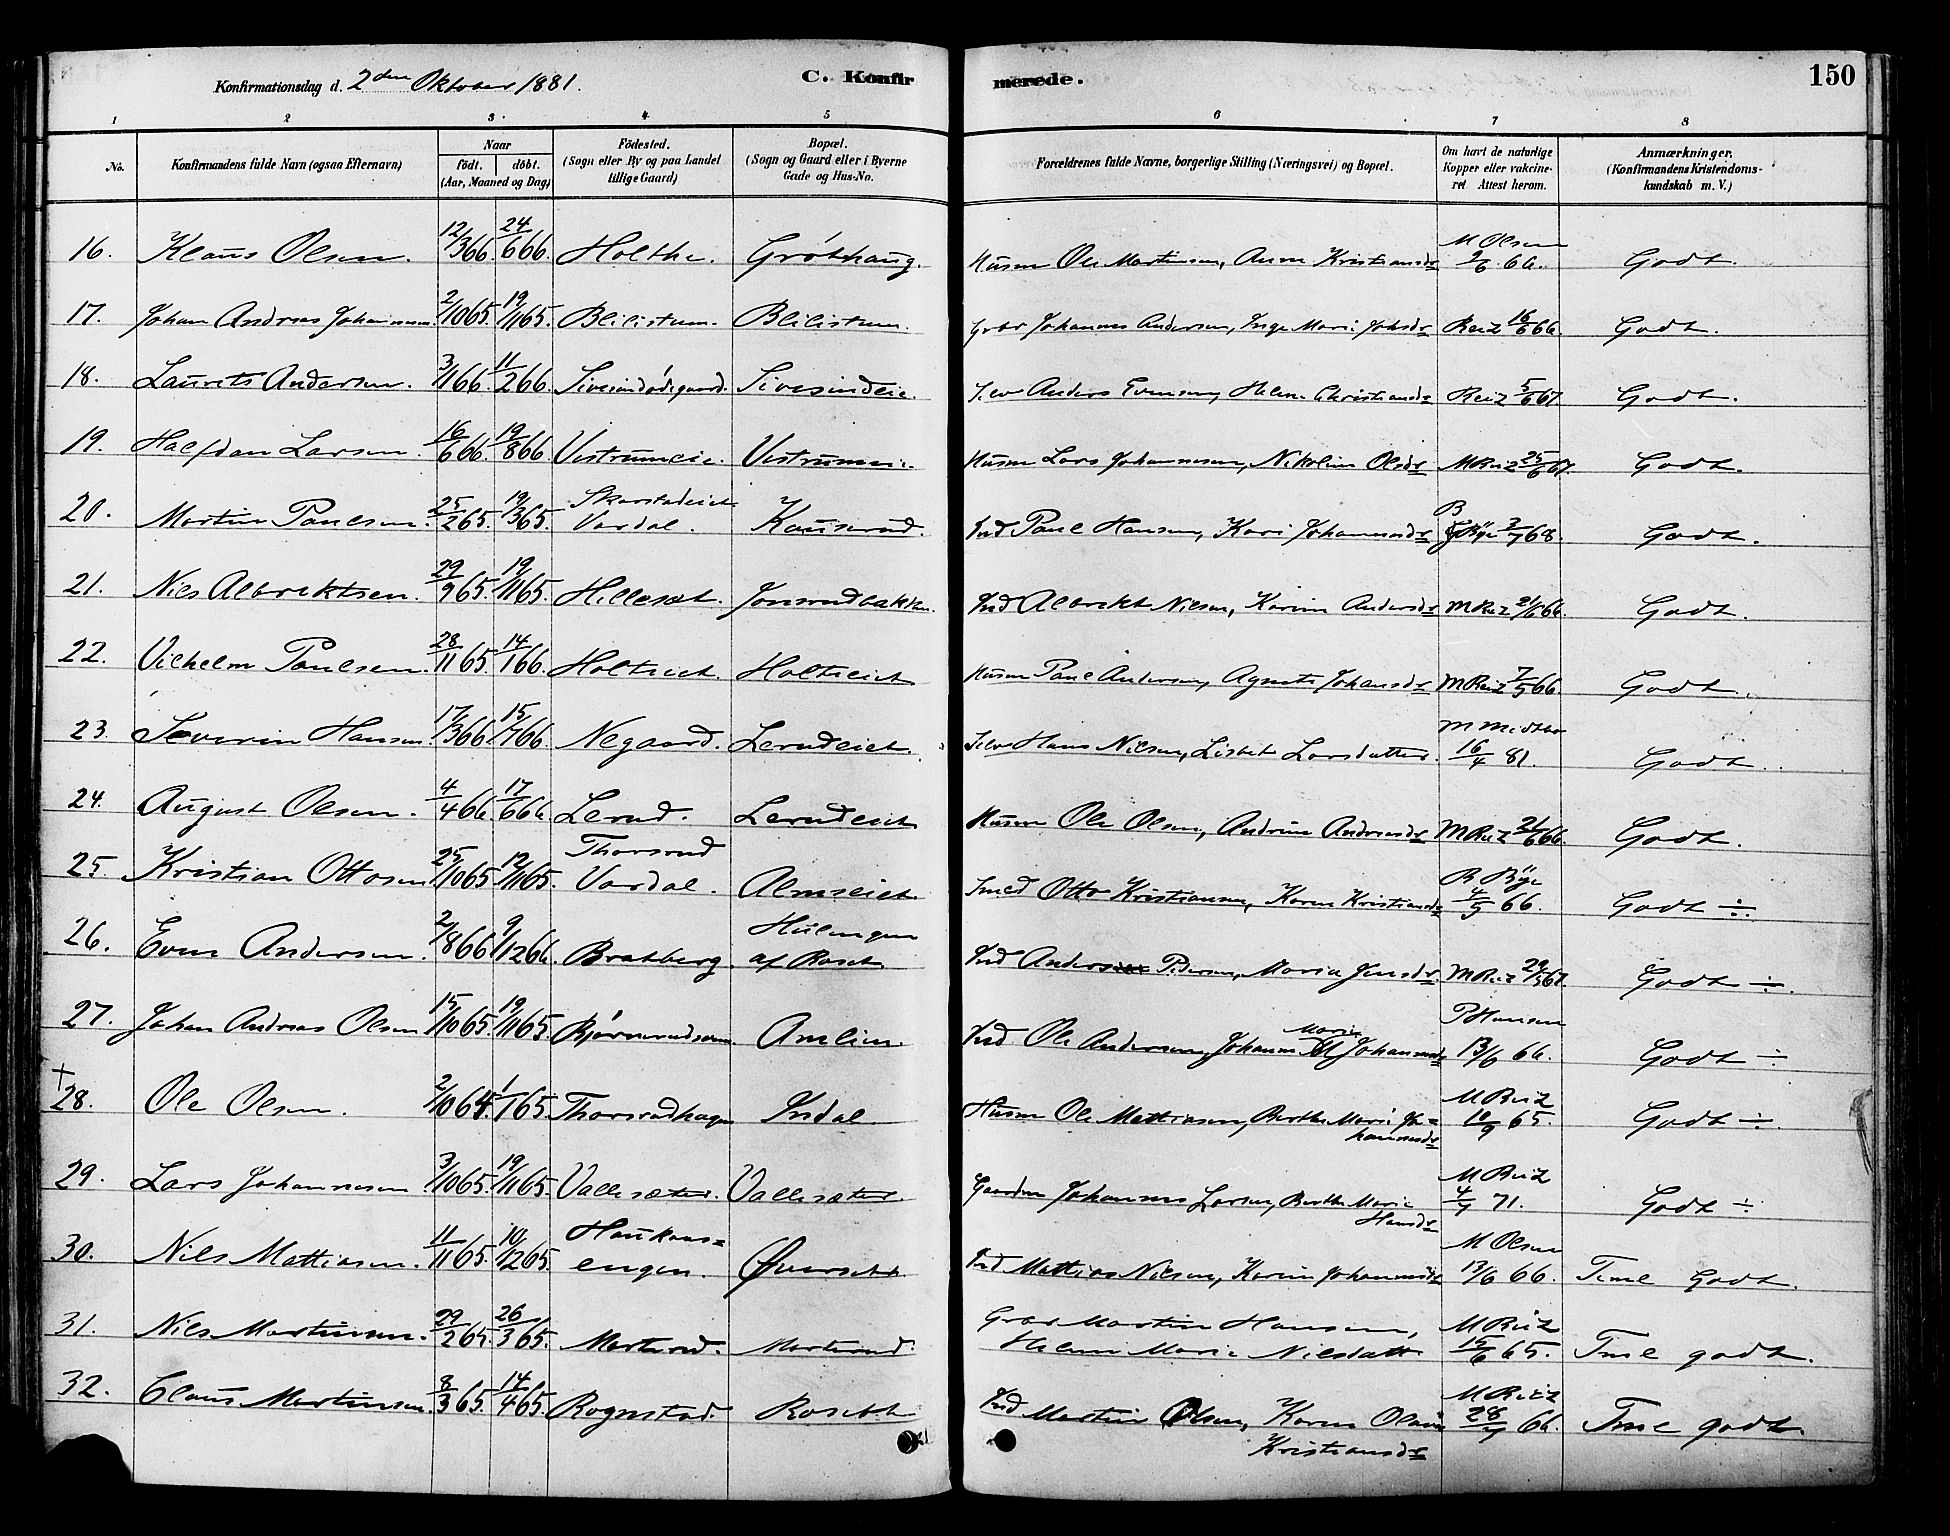 Konfirmationsdag d. 2den Oktober 1881.
C. Konfirmerede.
150
1 2 3 4 5 6 7 8
No.
Konfirmandens fulde Navn (ogsaa Efternavn)
Naar
födt. döbt.
(Aar, Maaned og Dag)
Födested.
(Sogn eller By og paa Landet
tillige Gaard)
Bopæl.
(Sogn og Gaard eller i Byerne
Gade og Hus-No.
Forældrenes fulde Navne, borgerlige Stilling (Næringsvei) og Bopæl.
Om havt de naturlige
Kopper eller vakcine-
ret. Attest herom.
Anmærkninger.
(Konfirmandens Kristendoms-
kundskab m. V.)
16. Klaus Olsen. 12/3 66. 24/6 66. Holthe. Gröthaug. Husm Ole Martinsen, Anne Kristiansdr M Olsen 2/6 66. Godt.
17. Johan Andreas Johannsen 2/10 65. 19/11 65. Blilistuen. Blilistuen. Gbr Johannes Andersen, Inge Marie Johsdr Reiz 16/6 66. Godt.
18. Laurits Andersen. 3/1 66. 11/2 66. Sivesindödegaard. Sivesindeie. Selv Anders Evensen, Helene Christiansdr Reiz 5/6 67. Godt.
19. Halfdan Larsen. 16/6 66. 19/8 66. Vestrumeie. Vestrumeie. Husm Lars Johannesen, Nikoline Olsdr M Reiz 25/6 67. Godt.
20. Martin Paulsen. 25/2 65. 19/3 65. Skarstadeiet Vardal. Kausrud. Ind Paul Hansen, Kari Johannesdr B Bÿe 3/7 68. Godt.
21. Nils Albrektsen. 29/9 65. 19/11 65. Hilleset. Jonsrudbakken. Ind Albrekt Nilsen, Karine Andersdr M Reiz 21/6 66. Godt.
22. Vilhelm Paulsen. 28/11 65. 14/1 66. Holteiet. Holteiet. Husm Paul Andersen, Agnete Johansdr M Reiz 7/5 66. Godt.
23. Severin Hansen. 17/3 66. 15/7 66. Negaard. Lerudeiet. Selv Hans Nilsen, Lisbet Larsdatter. M Midtbo 16/4 81. Godt.
24. August Olsen. 4/4 66. 17/6 66. Lerud. Lerudeiet. Husm Ole Olsen, Andrine Andreasdr M Reiz 21/6 66. Godt.
25. Kristian Ottosen 25/10 65. 12/11 65. Thorsrud Vardal. Almseiet. Smed Otto Kristiansen, Karen Kristiansdr B Bÿe 4/5 66. Godt ÷.
26. Even Andersen. 2/8 66. 9/12 66. Bratberg. Hulengen af Roset. Ind Anders Pedersen, Maria Jensdr. M Reiz 29/5 67. Godt ÷.
27. Johan Andreas Olsen 15/10 65. 19/11 65. Björnerudsveen. Amlien. Ind Ole Andersen, Johanne Marie Johannesdr P Hansen 13/6 66. Godt ÷
† 28. Ole Olsen. 2/10 64. 1/1 65. Thorsrudhagen Indal. Husm Ole Mathiasen, Berthe Marie Jo=
hannesdr M Reiz 10/9 65. Godt ÷.
29. Lars Johannesen 3/10 65. 19/11 65. Vallesæter. Vallesæter. Gaardm Johannes Larsen, Berthe Marie
Hansdr M Reiz 4/7 71. Godt ÷
30. Nils Mathiasen. 11/11 65. 10/12 65. Haukaas=
engen. Överset. Ind Mathias Nilsen, Karine Johannesdr M Olsen 13/6 66. Tmel Godt.
31. Nils Martinsen. 29/2 65. 26/3 65. Marterud. Marterud. Gbr Martin Hansen,
Helene Marie Nilsdatt M Reiz 15/6 65. Tmel godt.
32. Claus Martinsen. 8/3 65. 14/4 65. Rognstad. Roset Ind Martin Olsen, Karen Olava
Kristiansdr M Reiz 28/4 66. Tmel godt.